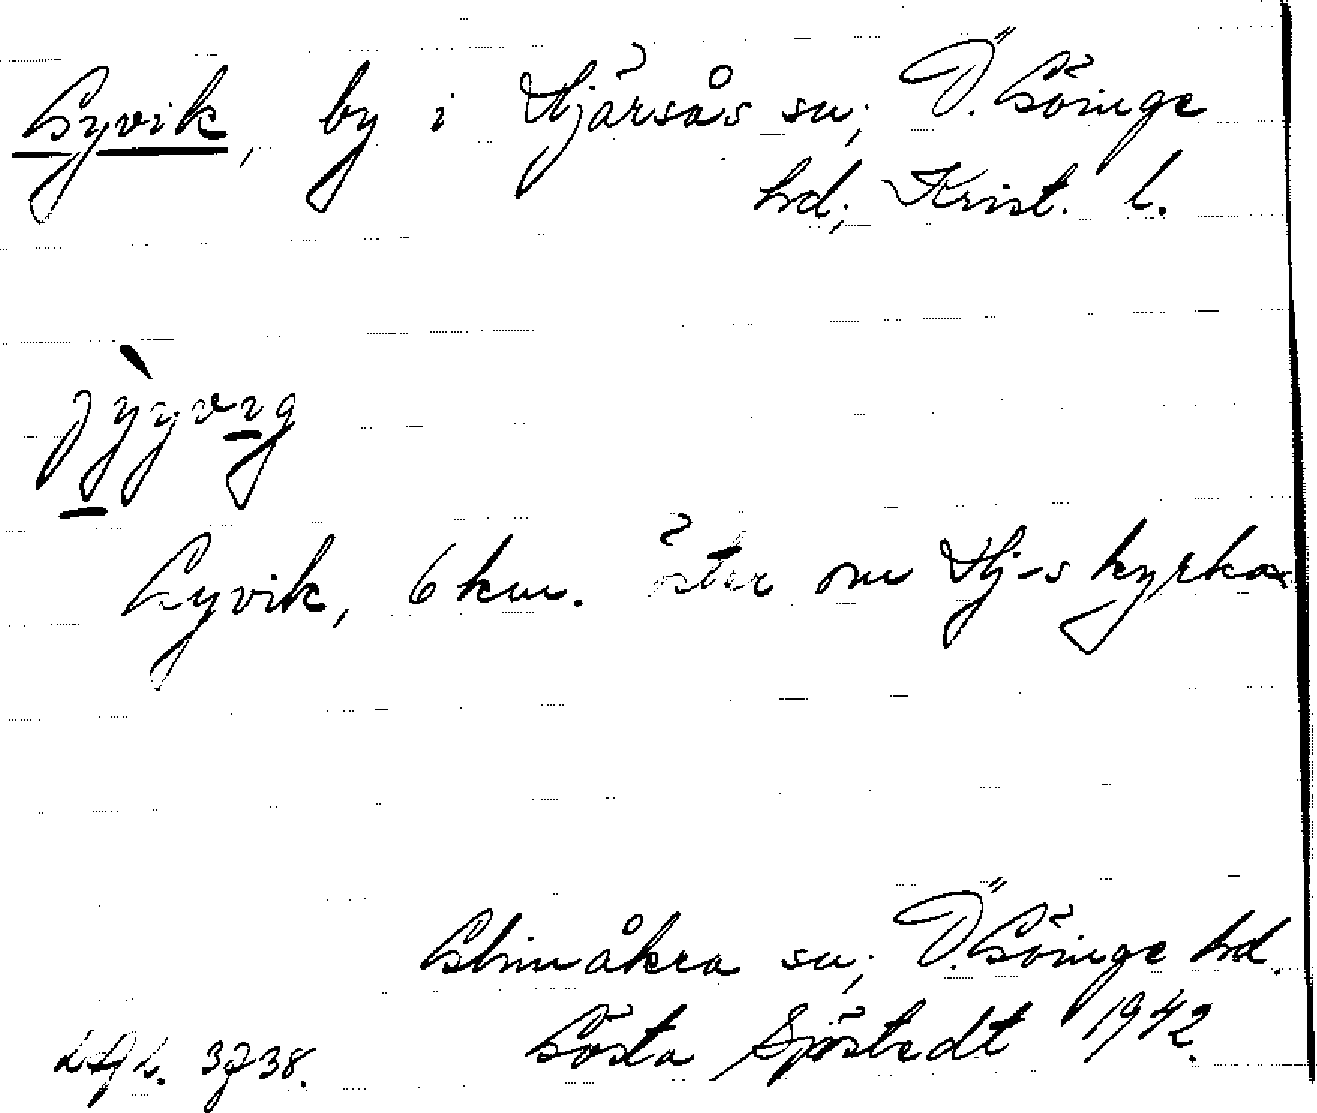 Gyvik, by i Hjärsås sn; Ö. Göinge
hd; Krist. l.
Gyvik, 6 km. öster om Hj-s kyrka
Glimåkra sn; Ö. Göinge hd.
Gösta Sjöstedt 1942.